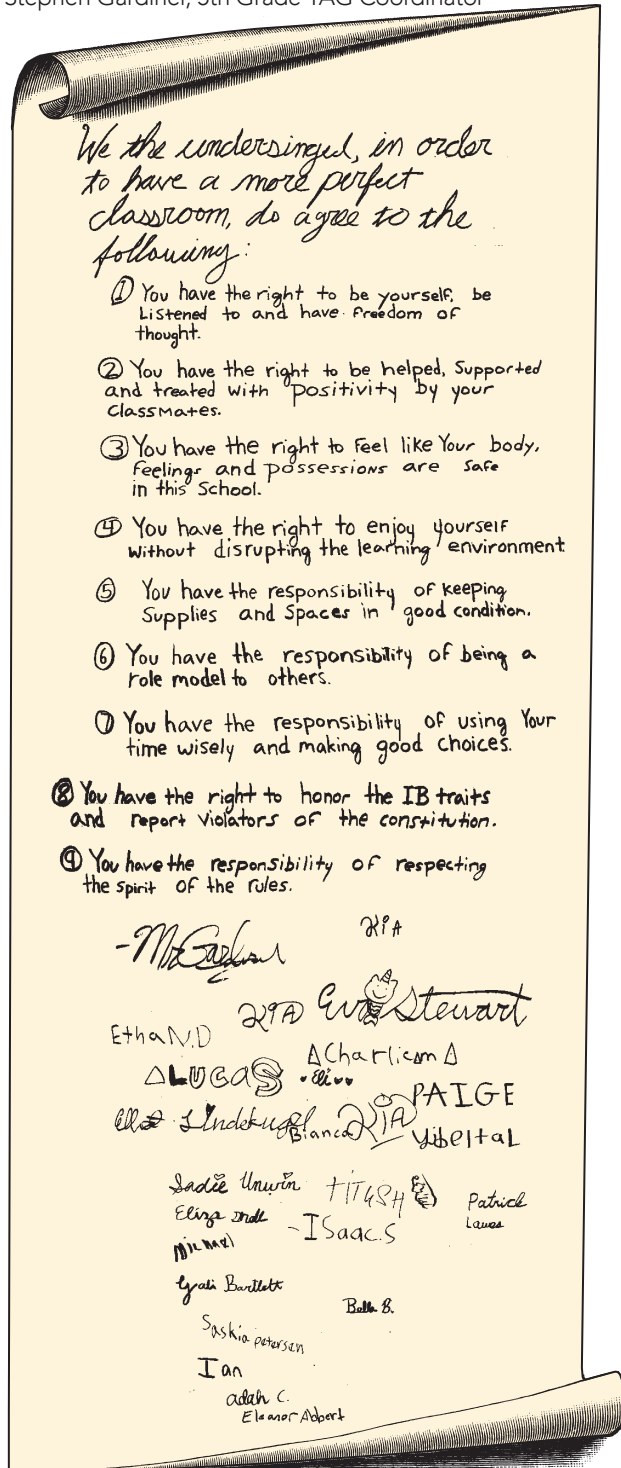 Stephen Gardiner, 5th Grade TAG Coordinator
We the undersinged, in order
to have a more perfect
classroom, do agree to the
following:
① You have the right to be yourself, be
Listened to and have freedom of
thought.
② You have the right to be helped, Supported
and treated with positivity by your
classmates.
③ You have the right to Feel like Your body,
Feelings and possessions are safe
in this School.
④ You have the right to enjoy yourself
without disrupting the learning environment
⑤ You have the responsibility of keeping
Supplies and Spaces in good condition.
⑥ You have the responsibility of being a
role model to others.
⑦ You have the responsibility of using Your
time wisely and making good choices.
⑧ You have the right to honor the IB traits
and report violators of the constitution.
⑨ You have the responsibility of respecting
the spirit of the rules.
KIA
-Mr Gardiner
KIA Eva Stewart
Ethan.D
Charlie
LUCAS
Eli
PAIGE
Bianca KIA
Yibeltal
Sadie Unwin
TITUSH
Patrick
Eliza
-ISaac.S
Michael
Bartlett
Bella B.
Saskia petersen
Ian
adah C.
Eleanor Abbert